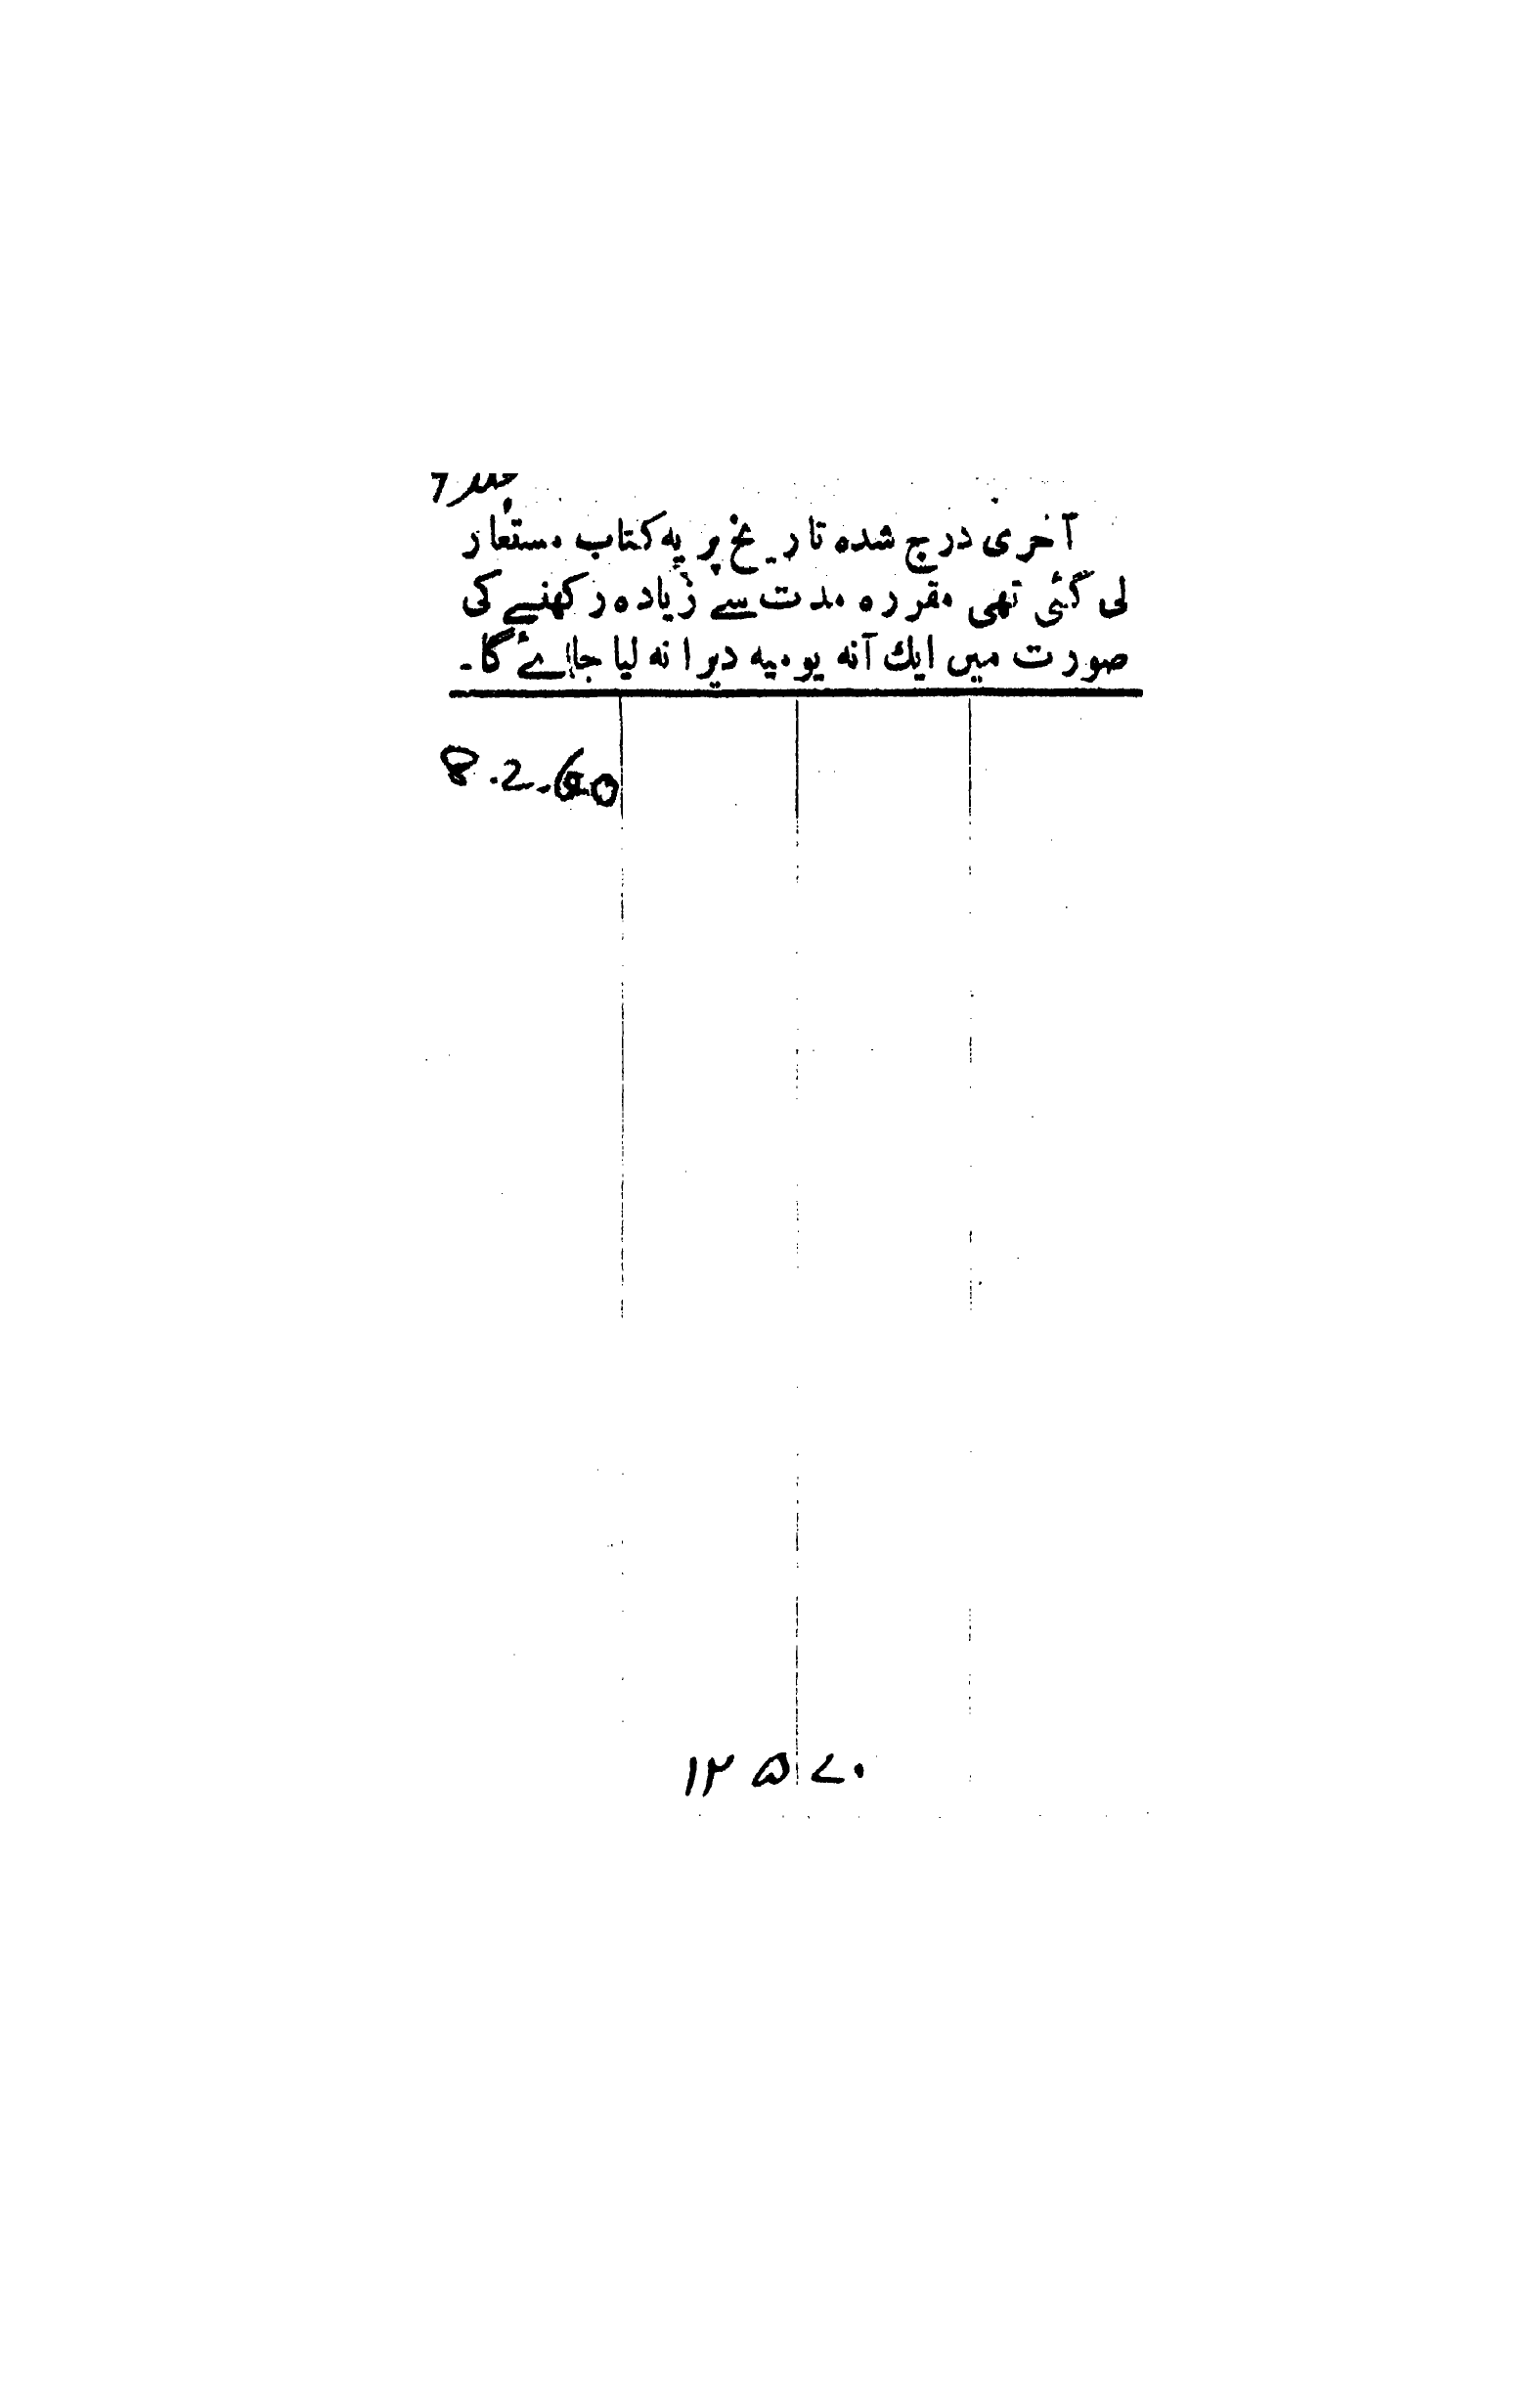 جلد ٦
آخری درج شدہ تاریخ پر یہ کتاب مستعار
لی گئی تھی مقررہ مدت سے زیادہ رکھنے کی
صورت میں ایك آنہ یومیہ دیرانہ لیا جائے گا۔
8.2.60
۱۲۵۷۰